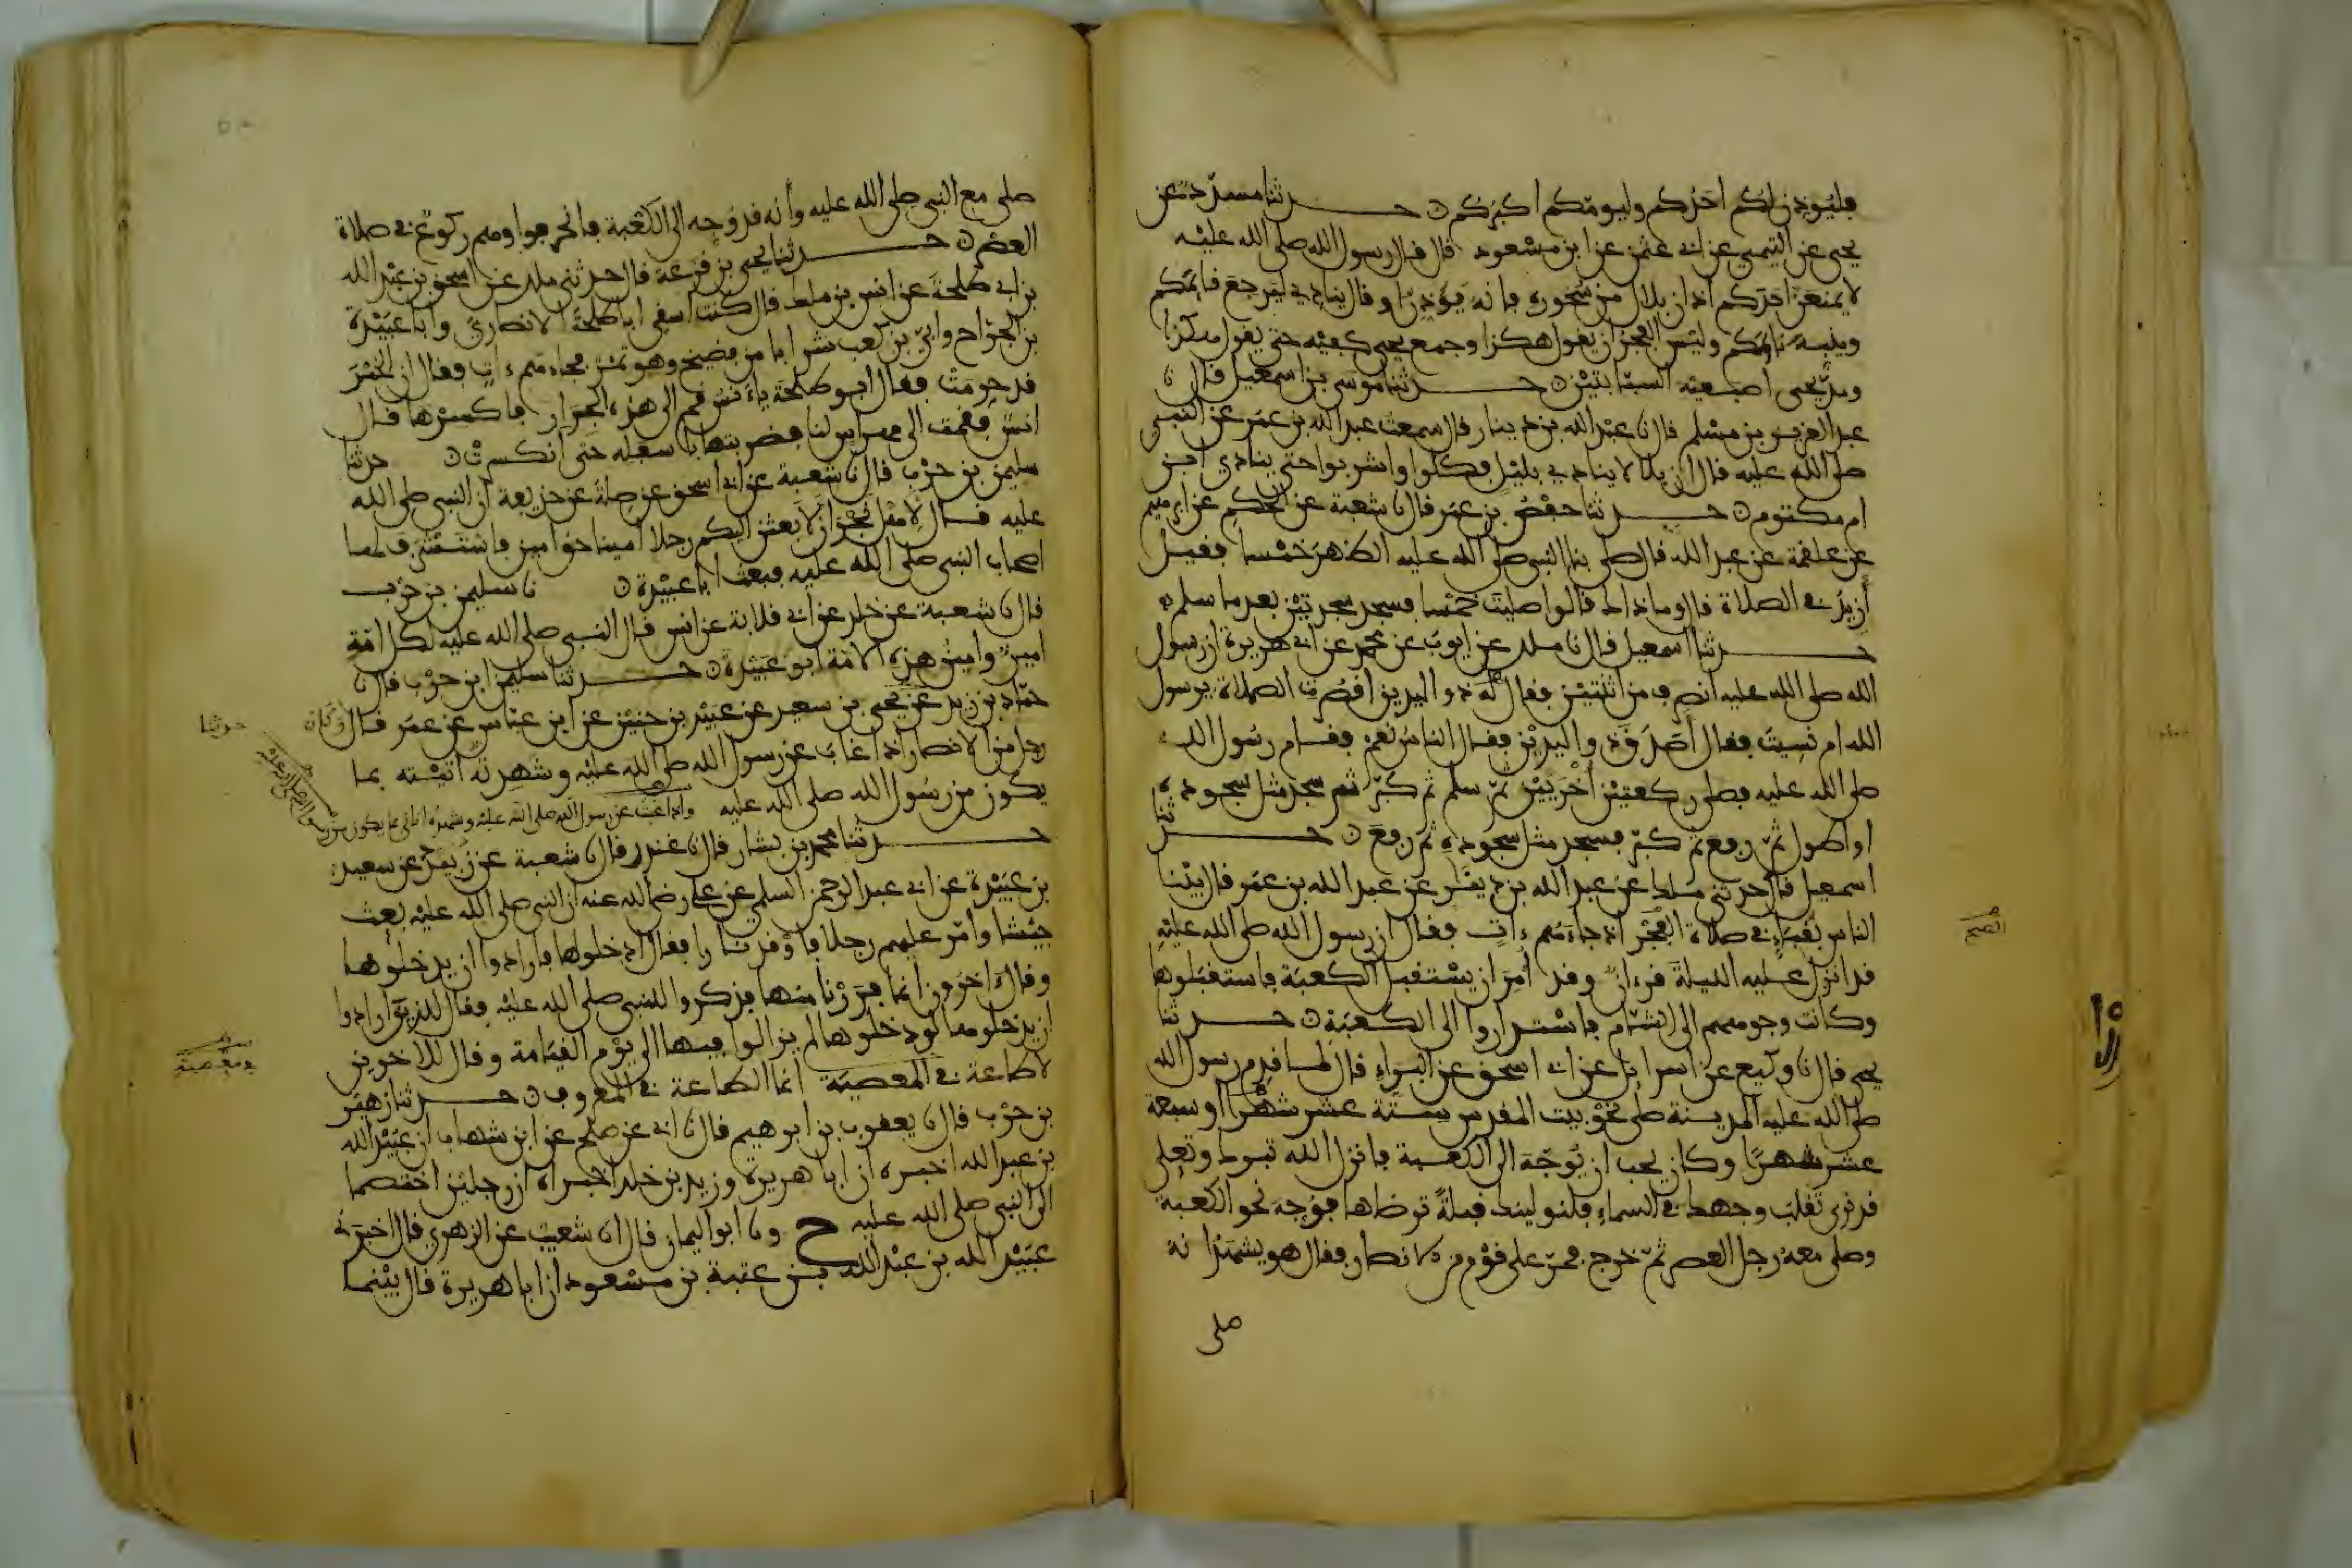 فليوذن لكم احدكم وليومكم اكبركم ۝ حدثنا مسدد عن
يحيى عن التيمي عن ابي عثمن عن ابن مسعود قال قال رسول الله صلى الله عليه
لا يمنعن احدكم اذان بلال من سحوره فانه يؤذن او قال ينادي ليرجع قائمكم
وينبه نائمكم وليس الفجر ان يقول هكذا وجمع يحيى كفيه حتى يقول هكذا
ومد يحيى اصبعيه السبابتين ۝ حدثنا موسى بن اسمعيل قال نا
عبد العزيز بن مسلم قال نا عبد الله بن دينار قال سمعت عبد الله بن عمر عن النبي
صلى الله عليه قال ان بلالا ينادي بليل فكلوا واشربوا حتى ينادي ابن
ام مكتوم ۝ حدثنا حفص بن عمر قال نا شعبة عن الحكم عن ابرهيم
عن علقمة عن عبد الله قال صلى بنا النبي صلى الله عليه الظهر خمسا فقيل
أزيد في الصلاة قال وما ذاك قالوا صليت خمسا فسجد سجدتين بعد ما سلم
حدثنا اسمعيل قال نا ملك عن ايوب عن محمد عن ابي هريرة ان رسول
الله صلى الله عليه انصرف من اثنتين فقال له ذو اليدين اقصرت الصلاة يرسول
الله ام نسيت فقال أصدق ذو اليدين فقال الناس نعم فقام رسول الله
صلى الله عليه فصلى ركعتين أخريين ثم سلم ثم كبر ثم سجد مثل سجوده
او اطول ثم رفع ثم كبر فسجد مثل سجوده ثم رفع ۝ حدثنا
اسمعيل قال حدثني ملك عن عبد الله بن دينار عن عبد الله بن عمر قال بينا
الناس بقباء في صلاة الفجر اذ جاءهم ءات فقال ان رسول الله صلى الله عليه
قد انزل عليه الليلة قرءان وقد أمر ان يستقبل الكعبة فاستقبلوها
وكانت وجوههم الى الشام فاستداروا الى الكعبة ۝ حدثنا
يحيى قال نا وكيع عن اسرائل عن ابي اسحق عن البراء قال لما قدم رسول الله
صلى الله عليه المدينة صلى نحو بيت المقدس ستة عشر شهرا او سبعة
عشر شهرا وكان يحب ان يوجه الى الكعبة فانزل الله تبرك وتعلى
قد نرى تقلب وجهك في السماء فلنولينك قبلة ترضاها فوجه نحو الكعبة
وصلى معه رجل العصر ثم خرج فمر على قوم من الانصار فقال هو يشهد انه
صلى
الصبح
صلى مع النبي صلى الله عليه وأنه قد وجه الى الكعبة فانحرفوا وهم ركوع في صلاة
العصر ۝ حدثنا يحيى بن قزعة قال حدثني ملك عن اسحق بن عبد الله
بن ابي طلحة عن انس بن ملك قال كنت اسقي ابا طلحة الانصاري وابا عبيدة
بن الجراح وابي بن كعب شرابا من فضيخ وهو تمر فجاءهم ءات فقال ان الخمر
قد حرمت فقال ابو طلحة ياءنس قم الى هذه الجرار فاكسرها قال
انس فقمت الى مهراس لنا فضربتها باسفله حتى انكسرت ۝ حدثنا
سليمن بن حرب قال نا شعبة عن ابي اسحق عن صلة عن حذيفة ان النبي صلى الله
عليه قال لاهل نجران لابعثن اليكم رجلا امينا حق امين فاستشرف لها
اصحاب النبي صلى الله عليه فبعث ابا عبيدة ۝ نا سليمن بن حرب
قال نا شعبة عن خلد عن ابي قلابة عن انس قال النبي صلى الله عليه لكل امة
امين وامين هذه الامة ابو عبيدة ۝ حدثنا سليمن ابن حرب قال نا
حماد بن زيد عن يحيى بن سعيد عن عبيد بن حنين عن ابن عباس عن عمر قال وكان
رجل من الانصار اذا غاب عن رسول الله صلى الله عليه وشهدته أتيته بما
يكون من رسول الله صلى الله عليه واذا غبت عن رسول الله صلى الله عليه وشهده اتاني بما يكون من رسول الله صلى الله عليه
حدثنا محمد بن بشار قال نا غندر قال نا شعبة عن زبيد عن سعيد
بن عبيدة عن ابي عبد الرحمن السلمي عن علي رضي الله عنه ان النبي صلى الله عليه بعث
جيشا وأمر عليهم رجلا فاوقد نارا فقال ادخلوها فارادوا ان يدخلوها
وقال ءاخرون انما فررنا منها فذكروا للنبي صلى الله عليه فقال للذين ارادوا
ان يدخلوها لو دخلوها لم يزالوا فيها الى يوم القيامة وقال للاخرين
لا طاعة في المعصية انما الطاعة في المعروف ۝ حدثنا زهير
بن حرب قال نا يعقوب بن ابرهيم قال نا ابي عن صلح عن ابن شهاب ان عبيد الله
بن عبد الله اخبره ان ابا هريرة وزيد بن خلد اخبراه ان رجلين اختصما
الى النبي صلى الله عليه ح ونا ابو اليمان قال انا شعيب عن الزهري قال اخبرني
عبيد الله بن عبد الله بن عتبة بن مسعود ان ابا هريرة قال بينما
حدثنا
في معصية